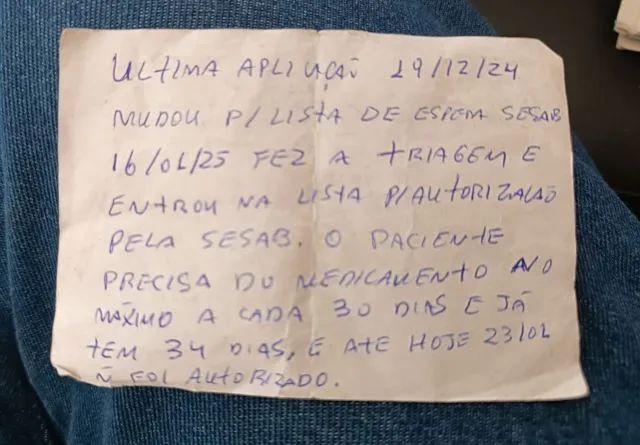 ULTIMA APLICAÇÃO 19/12/24
MUDOU P/ LISTA DE ESPERA SESAB
16/01/25 FEZ A TRIAGEM E
ENTROU NA LISTA P/AUTORIZACAO
PELA SESAB. O PACIENTE
PRECISA DO MEDICAMENTO NO
MÁXIMO A CADA 30 DIAS E JÁ
TEM 34 DIAS, E ATE HOJE 23/01
Ñ FOI AUTORIZADO.